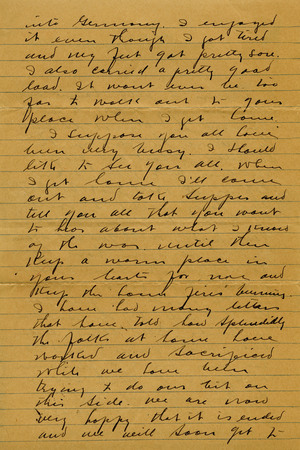 into Germany. I enjoyed
it even though I got tired
and my feet got pretty sore.
I also carried a pretty good
load. It wont ever be too
far to walk out to your
place when I get home.
I suppose you all have
been very busy. I should
like to see you all. When
I get home I'll come
out and take supper and
tell you all that you want
to hear about what I know
of the war. Until then
keep a warm place in
your hearts for me and
keep the home fires burning.
I have had many letters
that have told how splendidly
the folks at home have
worked and sacrificed
while we have been
trying to do our bit on
this side. We are now
very happy that it is ended
and we will soon get to